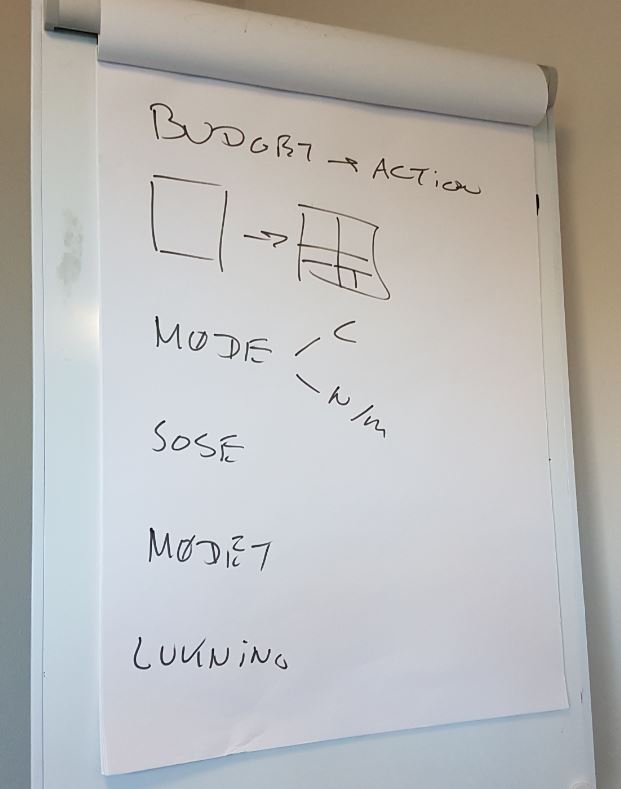 BUDGET → ACTION
→
MØDE C
N/m
SOSE
MØDET
LUKNING